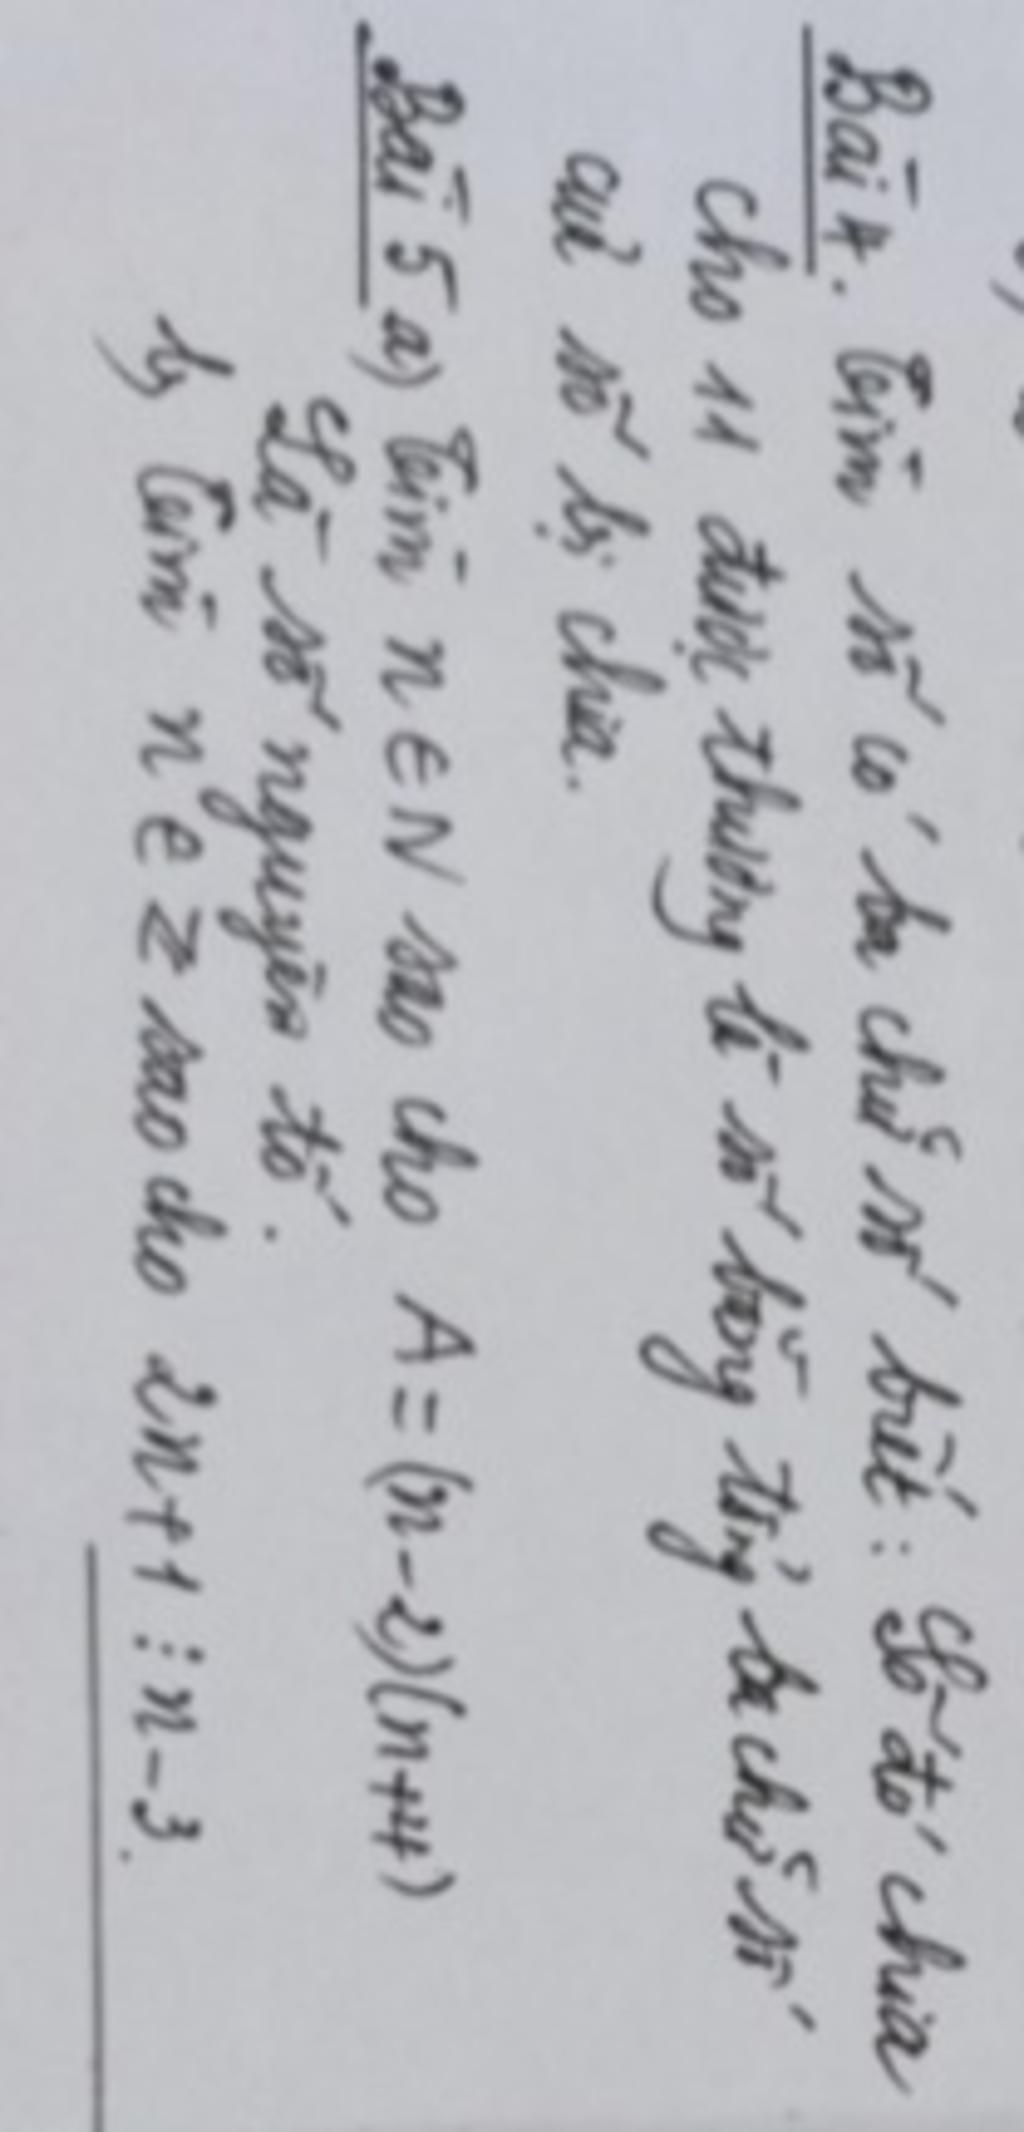 Bài 4. Tìm số có ba chữ số biết: Số đó chia
cho 11 được thương là số bằng tổng ba chữ số
của số bị chia.
Bài 5 a) Tìm n ∈ N sao cho A = (n-2)(n+4)
Là số nguyên tố.
b) Tìm n ∈ Z sao cho 2n+1 ⋮ n-3.